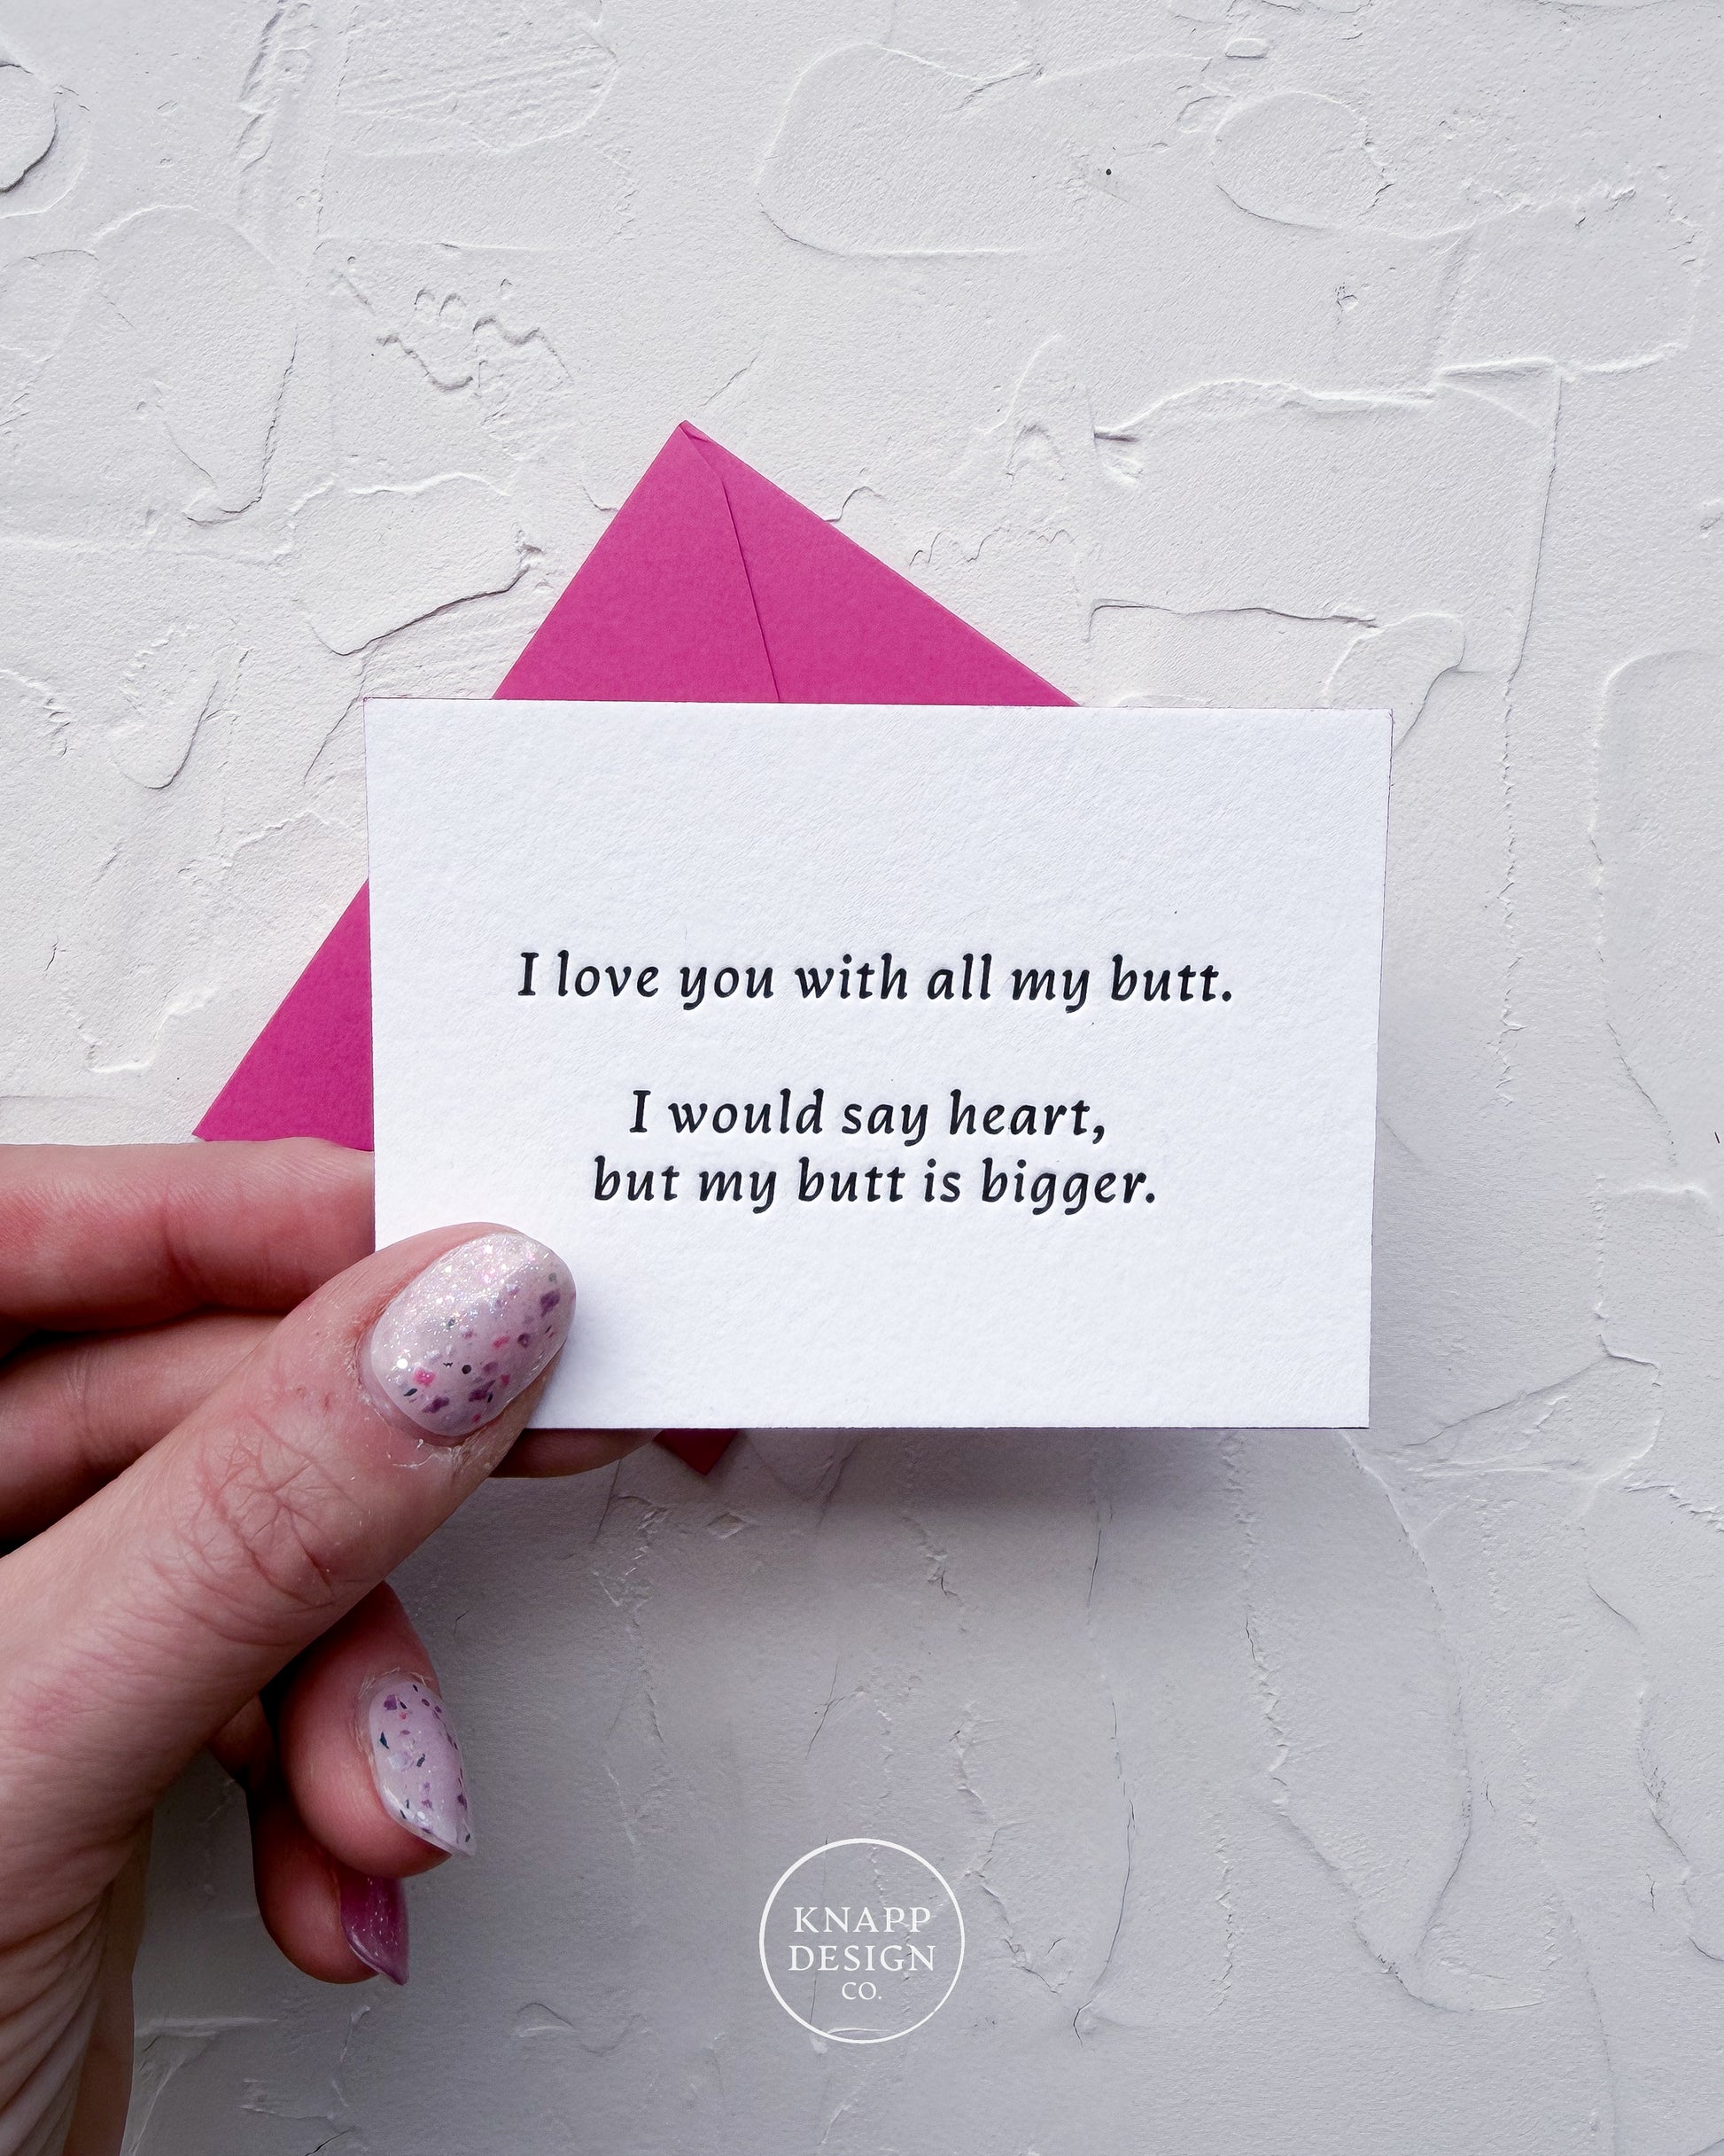 I love you with all my butt.
I would say heart,
but my butt is bigger.
KNAPP
DESIGN
CO.